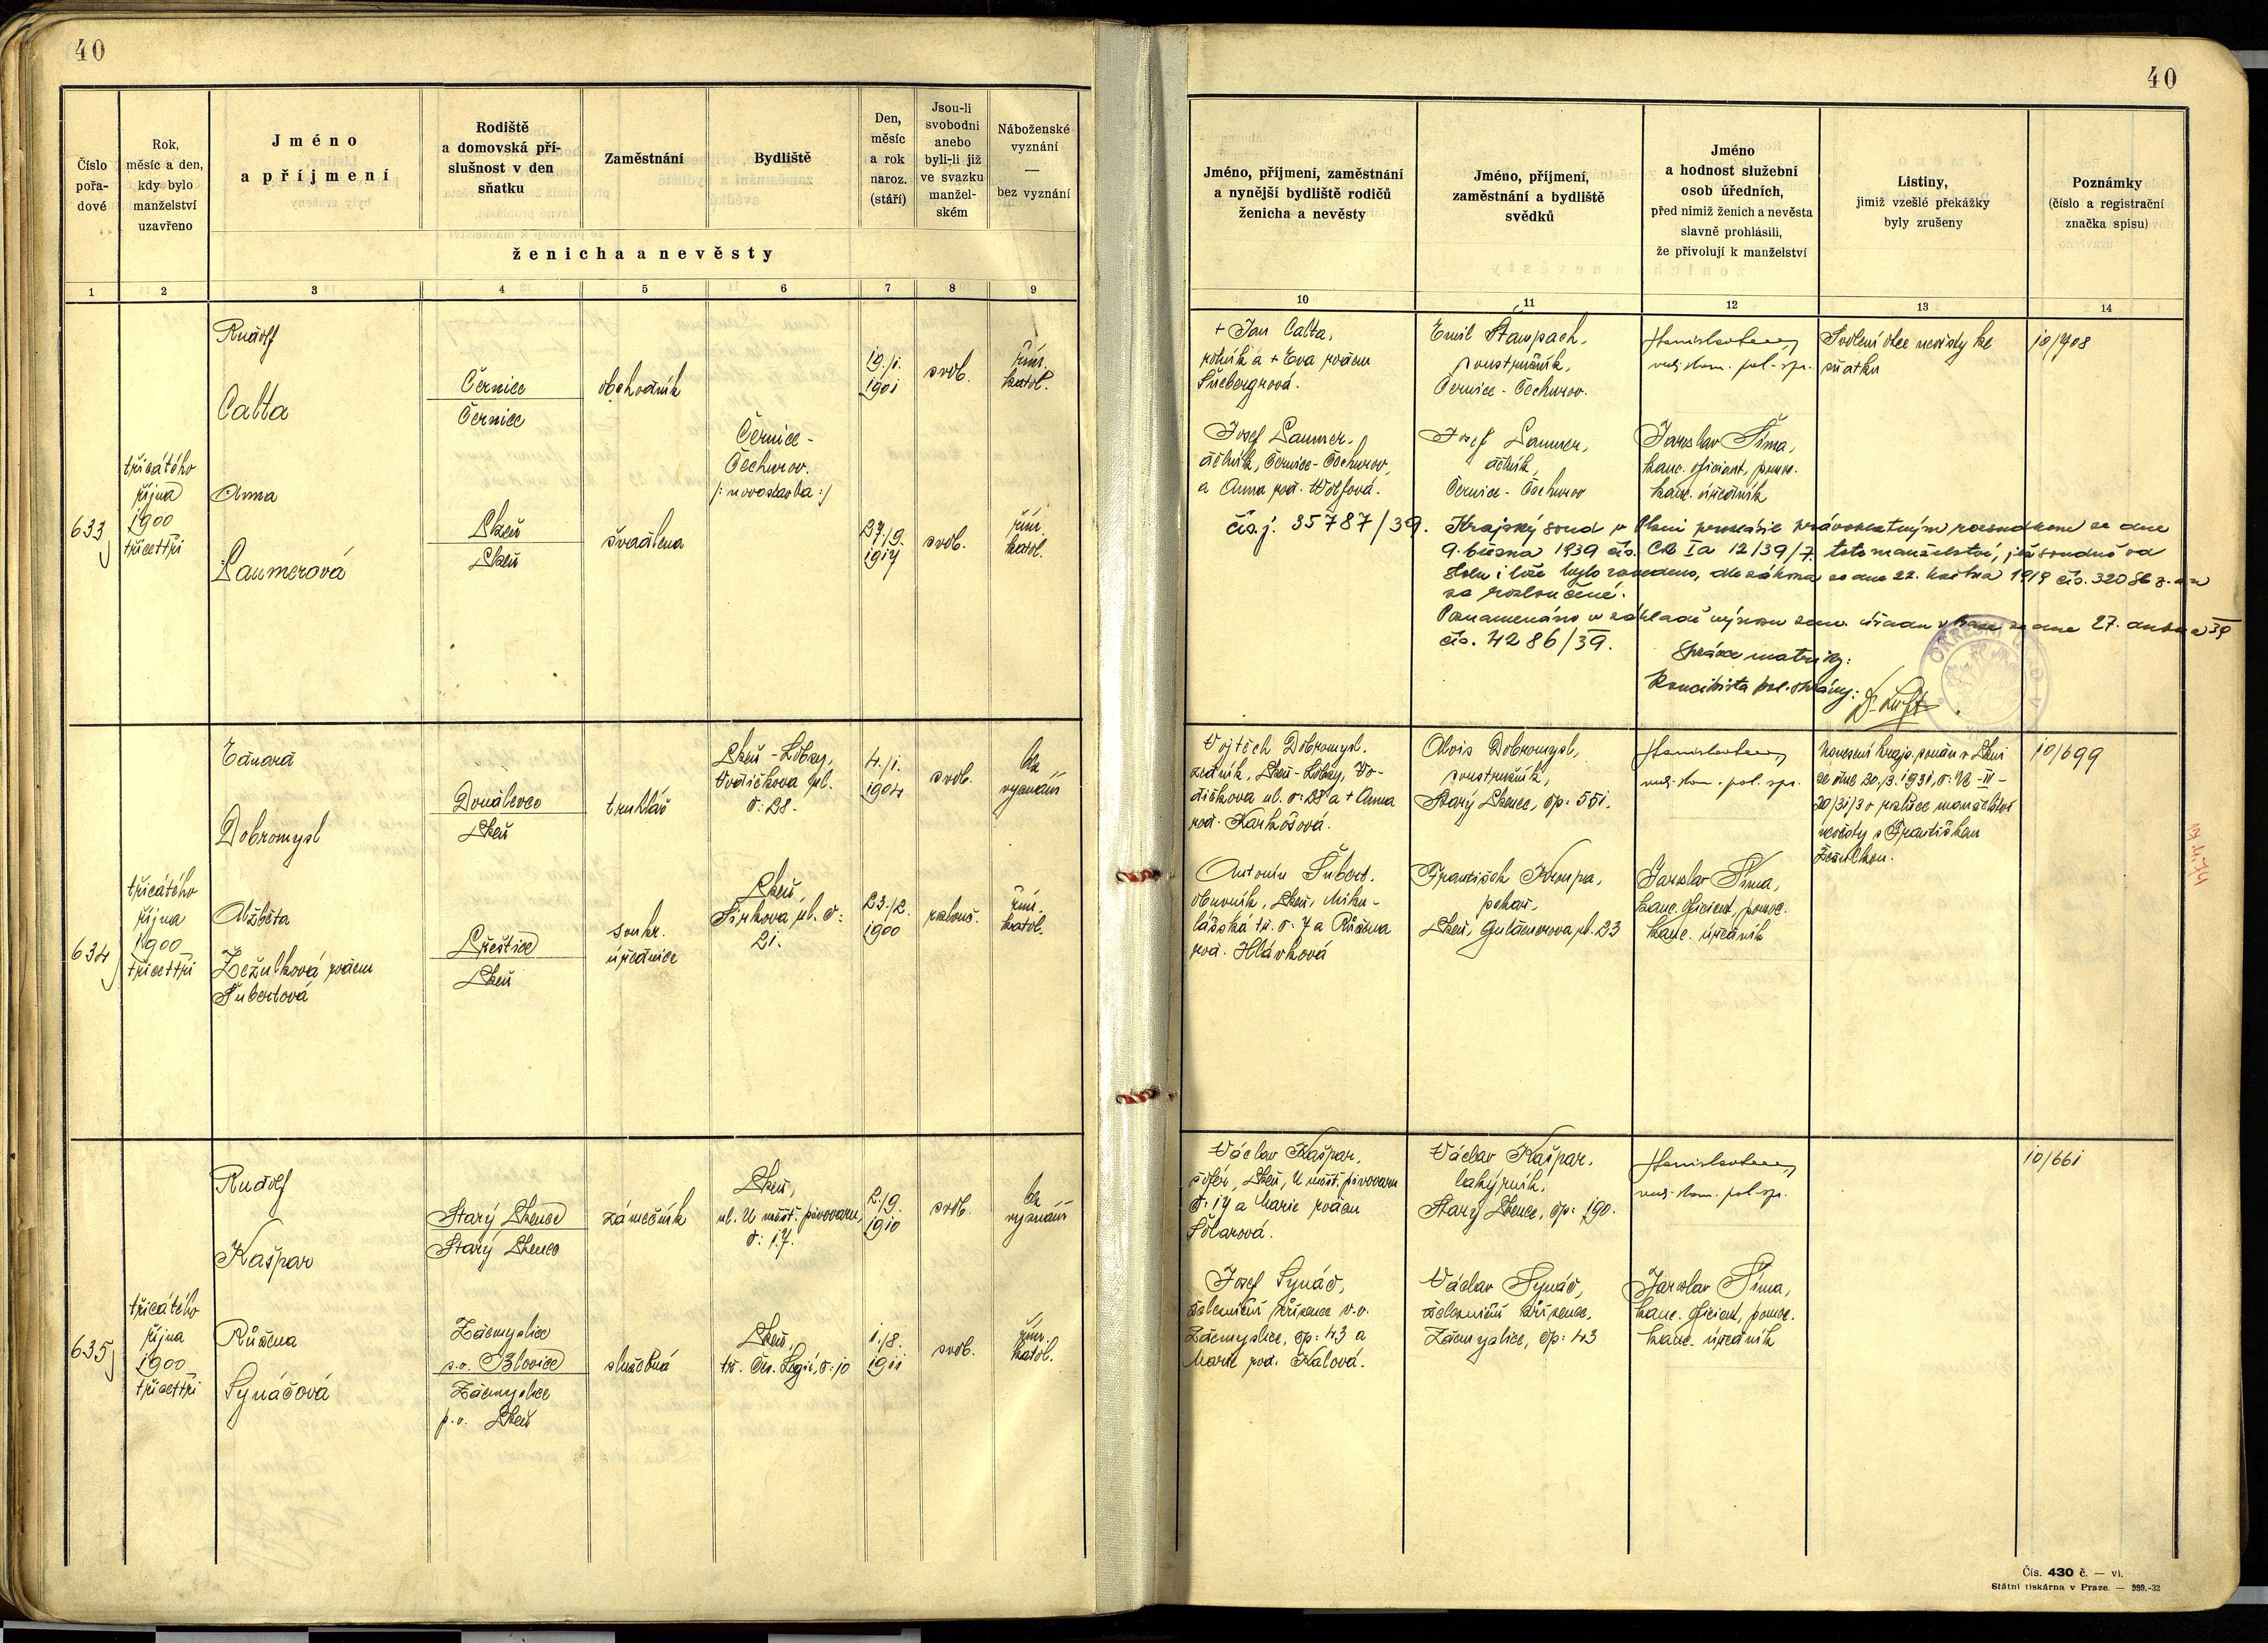 40
40
Číslo pořadové
Rok, měsíc a den, kdy bylo manželství uzavřeno
Jméno a příjmení
Rodiště a domovská příslušnost v den sňatku
Zaměstnání
Bydliště
Den, měsíc a rok naroz. (stáří)
Jsou-li svobodni anebo byli-li již ve svazku manželském
Náboženské vyznání — bez vyznání
ženicha a nevěsty
Jméno, příjmení, zaměstnání a nynější bydliště rodičů ženicha a nevěsty
Jméno, příjmení, zaměstnání a bydliště svědků
Jméno a hodnost služební osob úředních, před nimiž ženich a nevěsta slavně prohlásili, že přivolují k manželství
Listiny, jimiž vzešlé překážky byly zrušeny
Poznámky (číslo a registrační značka spisu)
1 2 3 4 5 6 7 8 9
10 11 12 13 14
633
třicátého
října
1900
třicettři
Rudolf
Calta
Černice
Černice
obchodník
Černice -
Čechurov.
/: novostavba :/
19./1.
1901
svob.
řím.
katol.
Anna
Laumerová
Plzeň
Plzeň
švadlena
27./9.
1917
svob.
řím.
katol.
+ Jan Calta,
rolník a + Eva rodem
Šnebergrová.
Josef Laumer,
dělník, Černice - Čechurov,
a Anna roz. Wolfová.
Emil Štampach,
soustružník,
Černice - Čechurov.
Josef Laumer,
dělník,
Černice - Čechurov
Jaroslav Šíma,
kanc. oficiant, pomoc.
kanc. úředník
Svolení otce nevěsty ke
sňatku
10/708
čís. j. 35787/39.
Krajský soud v Plzni prohlásil právoplatným rozsudkem ze dne
9. března 1939 čís. Ck Ia 12/39/7. toto manželství, jež soudně od
stolu i lože bylo rozvedeno, dle zákona ze dne 22. května 1919 čís. 320 Sb. z. a n
za rozloučené.
Poznamenáno v základě výnosu zem. úřadu v Praze ze dne 27. dubna 39
čís. 4286/39.
Správce matriky:
Koncipista pol. správy:
634
třicátého
října
1900
třicettři
Eduard
Dobromysl
Doudlevce
Plzeň
truhlář
Plzeň - Lobzy,
Vodičkova ul.
č: 28.
4./1.
1904
svob.
bez
vyznání
Alžběta
Žežulková rodem
Šubertová
Přeštice
Plzeň
soukr.
úřednice
Plzeň,
Jirkova ul. č:
21.
23./2.
1900
rozlouč.
řím.
katol.
Vojtěch Dobromysl,
zedník, Plzeň - Lobzy, Vo-
dičkova ul. č: 28 a + Anna
roz. Karhošová.
Antonín Šubert,
obuvník, Plzeň, Miku-
lášská tř. č. 7 a Růžena
roz. Hlávková
Alois Dobromysl,
soustružník,
Starý Plzenec, čp: 551.
František Kroupa,
pekař,
Plzeň, Guldenerova ul. 23
Jaroslav Šíma,
kanc. oficiant, pomoc.
kanc. úředník
Usnesení krajs. soudu v Plzni
ze dne 20./3. 1931, č: Nc - IV -
20/31/3 o rozluce manželství
nevěsty s Františkem
Žežulkou.
10/699
635
třicátého
října
1900
třicettři
Rudolf
Kašpar
Starý Plzenec
Starý Plzenec
zámečník
Plzeň,
ul. U měšť. pivovaru,
č: 17.
2./9.
1910
svob.
bez
vyznání
Růžena
Synáčová
Zdemyslice
p. o. Blovice
Zdemyslice
p. o. Plzeň
služebná
Plzeň,
tř. Čes. Legií, č: 10
1./8.
1911
svob.
řím.
katol.
Václav Kašpar,
šofér, Plzeň, U měšť. pivovaru
č: 17 a Marie rodem
Šotarová.
Josef Synáč,
železniční zřízenec v. v.
Zdemyslice, čp: 43 a
Marie roz. Kalová.
Václav Kašpar,
lakýrník,
Starý Plzenec, čp: 190.
Václav Synáč,
železniční zřízenec,
Zdemyslice, čp: 43
Jaroslav Šíma,
kanc. oficiant, pomoc.
kanc. úředník
10/661
Čís. 430 č. — vl.
Státní tiskárna v Praze. — 999.-32